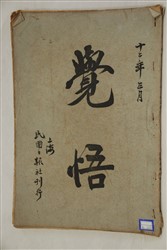 十二年 三月
覺悟
上海
民國日報社刊行